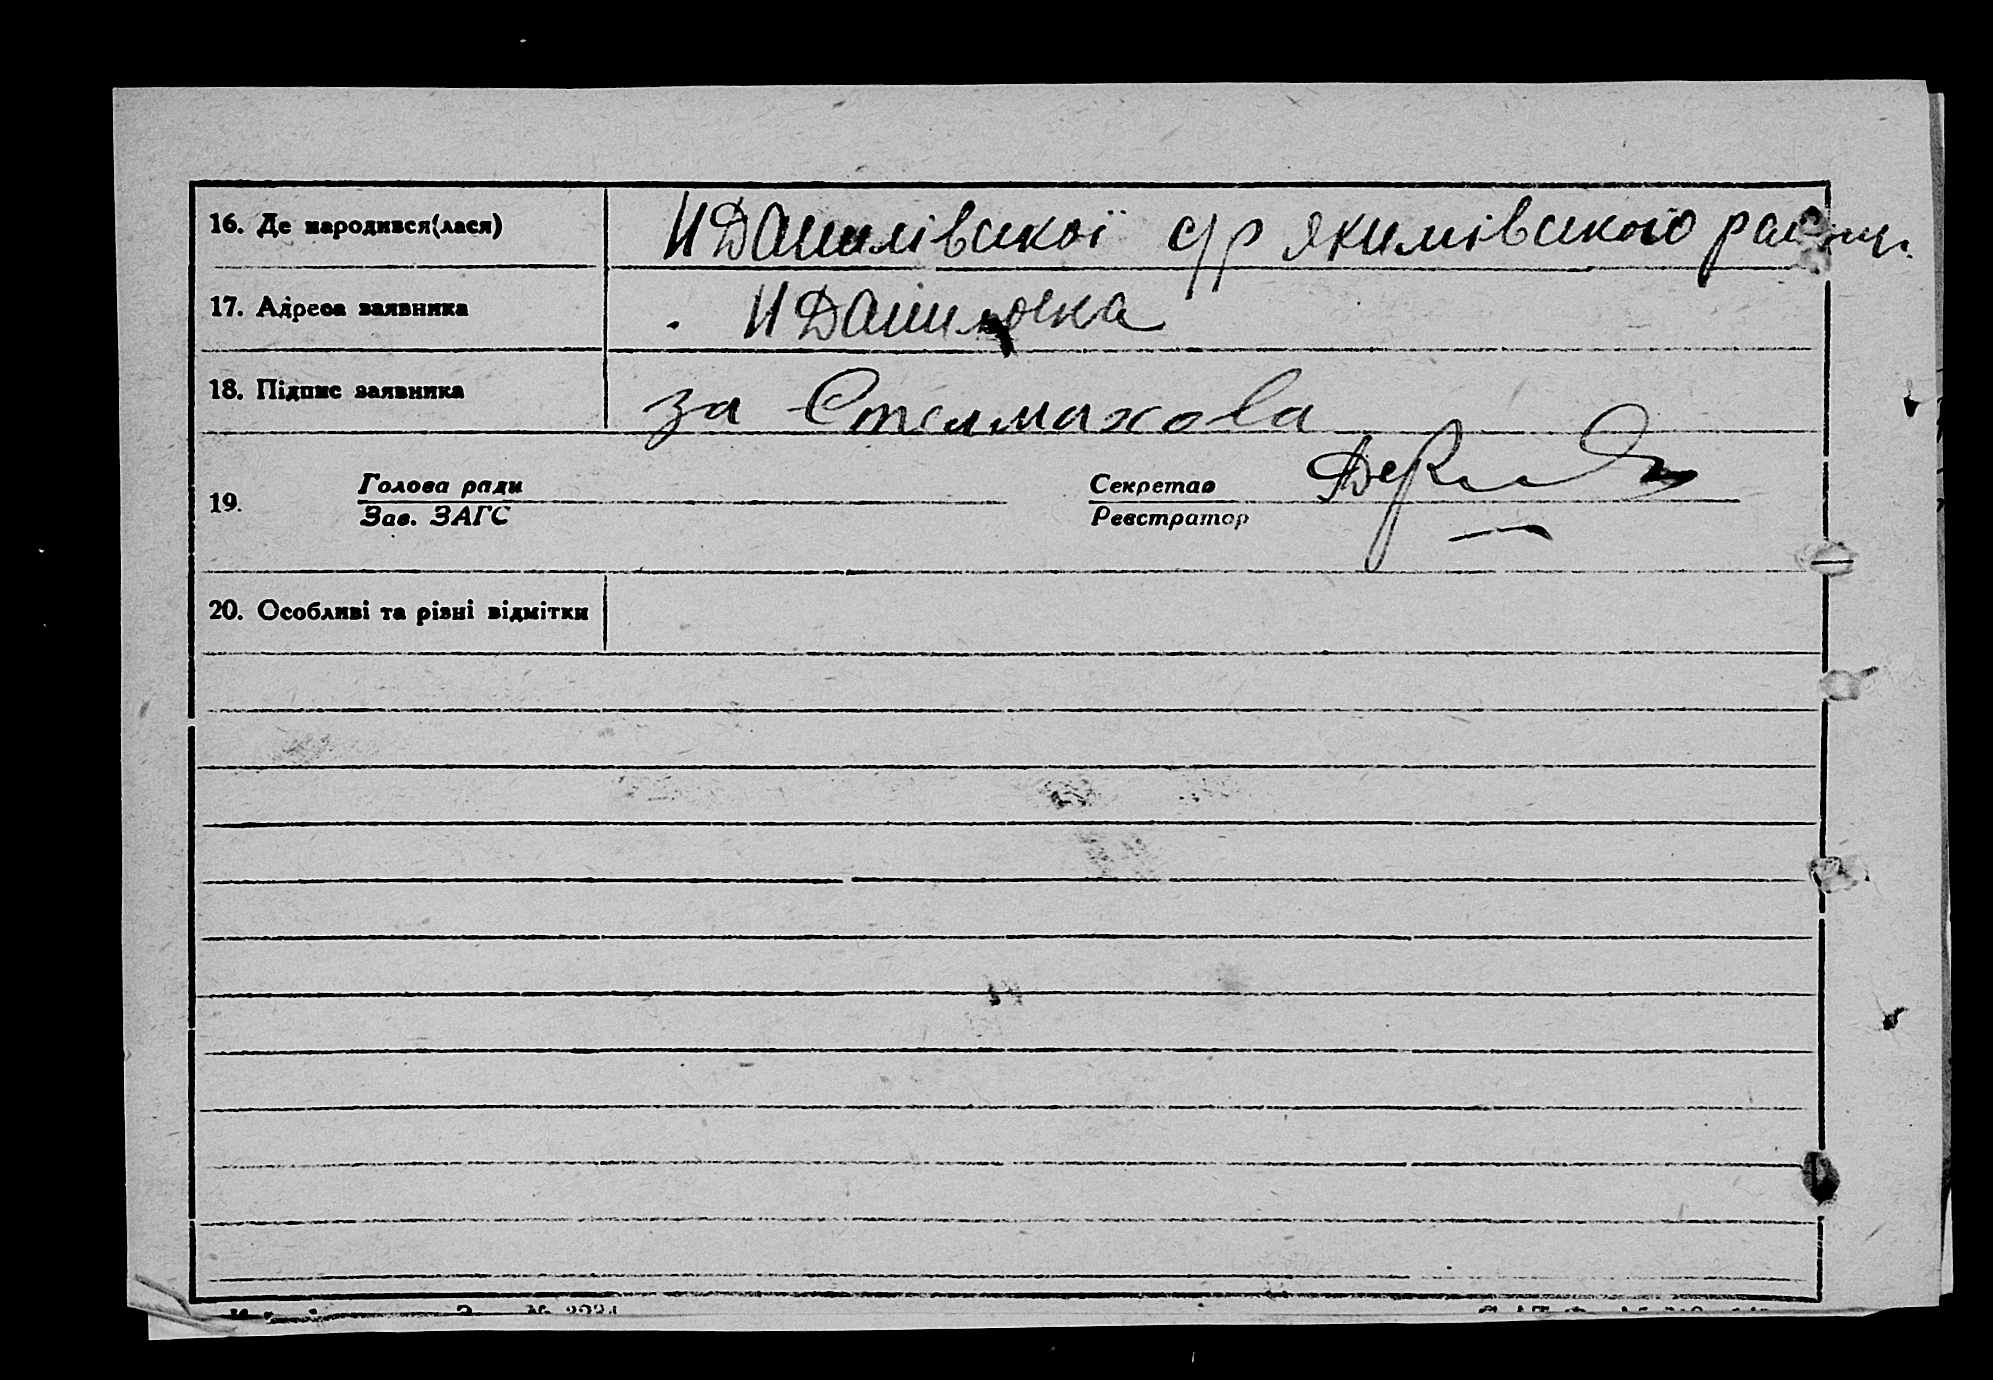 16. Де народився(лася) И Данилівской с/р Якимівского району
17. Адреса заявника И Даниловка
18. Підпис заявника за Стелмахова
19. Голова ради Секретар
Зав. ЗАГС Реєстратор
20. Особливі та різні відмітки